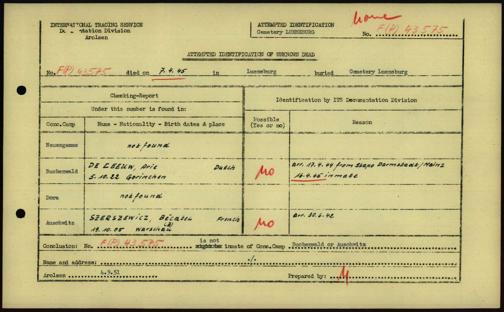 INTERNATIONAL TRACING SERVICE
Documentation Division
Arolsen
ATTEMPTED IDENTIFICATION
Cemetery LUENEBURG
No. F(P) 43575
ATTEMPTED IDENTIFICATION OF UNKNOWN DEAD
No. F(P) 43575 died on 7.4.45 in Lueneburg buried Cemetery Lueneburg
Checking-Report
Under this number is found in:
Identification by ITS Documentation Division
Conc.Camp
Name - Nationality - Birth dates & place
Possible
(Yes or no)
Reason
Neuengamme
not found
Buchenwald
DE LEEUW, Arie Dutch
5.10.22 Gorinchem
No
arr. 17.9.44 from Stapo Darmstadt/Mainz
14.4.45 inmate
Dora
not found
Auschwitz
SZERSZEWICZ, French
19.10.05 Warschau
No
arr. 30.6.42
Conclusion: No. F(P) 43575 is not inmate of Conc.Camp Buchenwald or Auschwitz
Name and address: ./.
Arolsen 4.9.51
Prepared by: